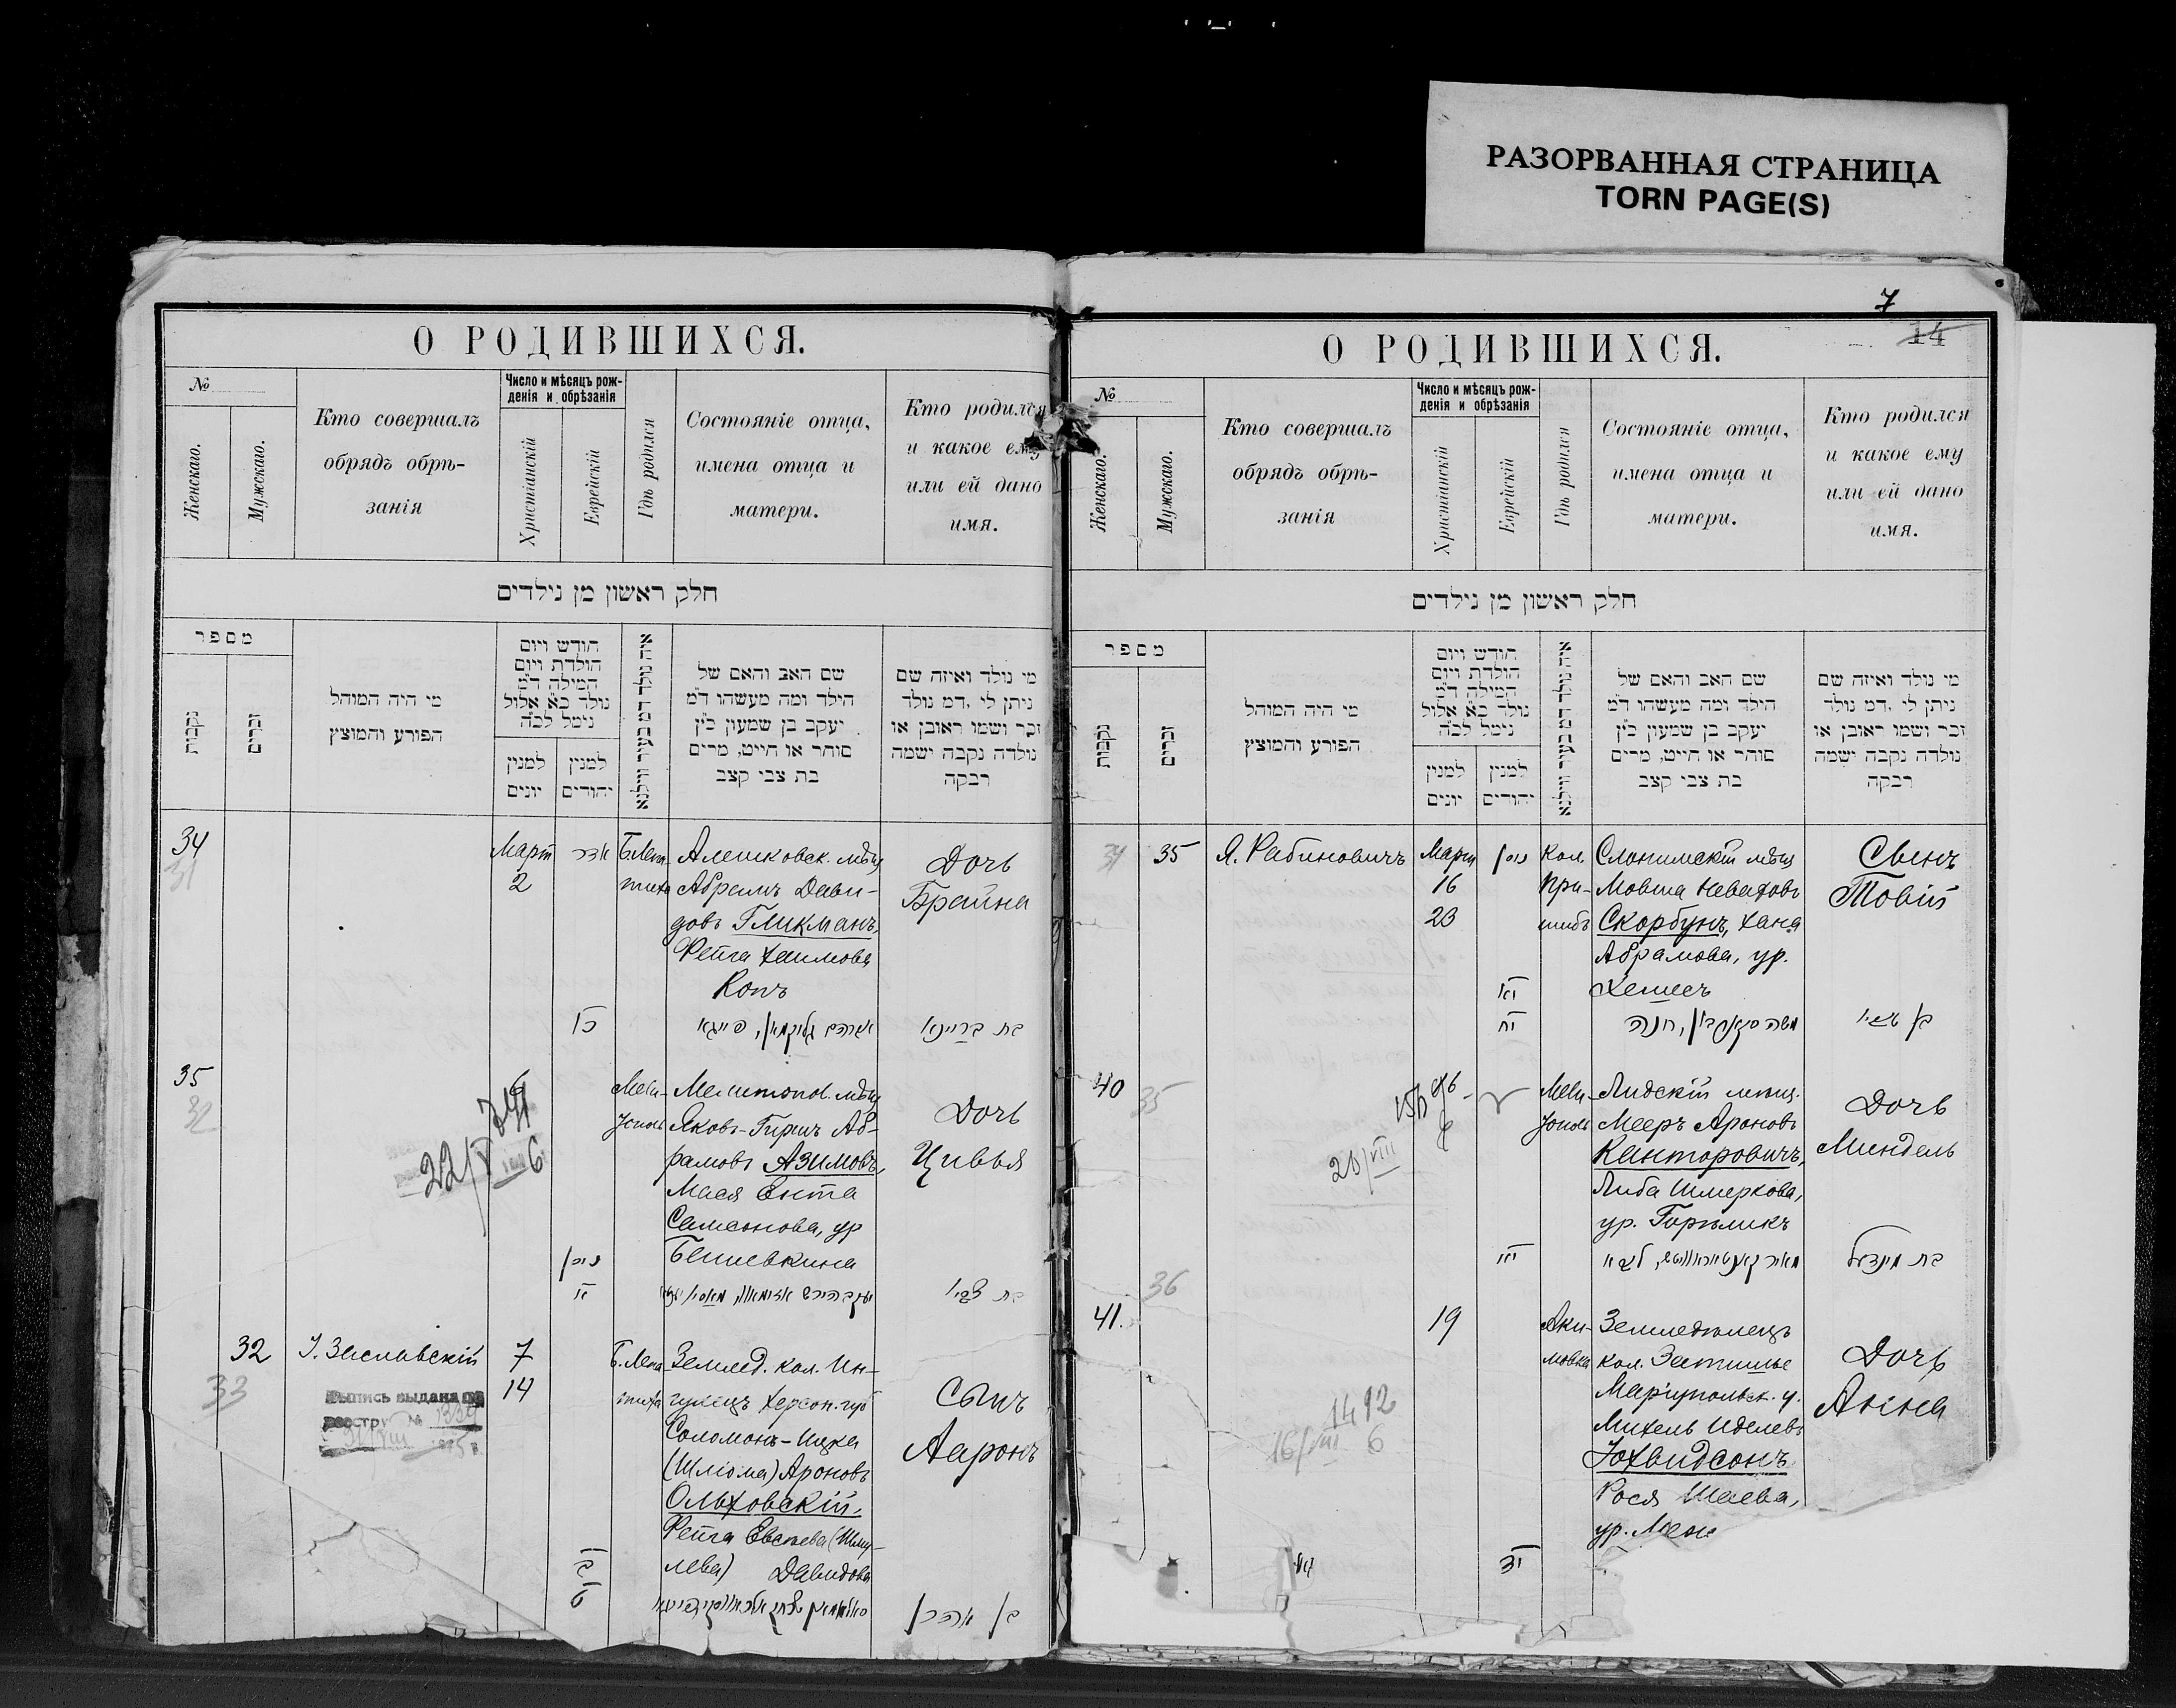 РАЗОРВАННАЯ СТРАНИЦА
TORN PAGE(S)
О РОДИВШИХСЯ.
№
Женскаго.
Мужскаго.
Кто совершалъ
обрядъ обрѣ-
занія
Число и мѣсяцъ рож-
денія и обрѣзанія
Христіанскій
Еврейскій
Гдѣ родился
Состояніе отца,
имена отца и
матери.
Кто родился
и какое ему
или ей дано
имя.
חלק ראשון מן נילדים
מספר
נקבות
זכרים
מי היה המוהל
הפורע והמוצץ
חודש ויום
הולדת ויום
המילה ד"מ
נולד כ"א אלול
נימל לכ"ה
למנין
יונים
למנין
יהודים
שם האב והאם של
הילד ומה מעשהו ד"מ
יעקב בן שמעון כ"ץ
סוחר או חייט, מרים
בת צבי קצב
מי נולד ואיזה שם
ניתן לי, דמ נולד
זכר ושמו ראובן או
נולדה נקבה ישמה
רבקה
34
31
Март
2
אדר
Б.Лепа-
тиха
Алешковск. мѣщ
Абрамъ Дави-
довъ Гликманъ,
Фейга Хаимова
Копъ
Дочь
Брайна
כו
אברהם גליקמאן, פייגא
בת בריינא
35
32
6
22/V 6
Мели-
тополь
Мелитопол. мѣщ
Яковъ-Гиршъ Аб-
рамовъ Азимовъ,
Мася Ента
Самсонова, ур
Бешевкина
Дочь
Цивья
ניסן
א
בת צביו
32
33
І. Заславскій
7
14
Б.Лепа-
тиха
Землед. кол. Ин-
гулецъ Херсон. губ
Соломонъ-Ицка
(Шліома) Ароновъ
Ольховскій,
Фейга Евсѣева (Шму-
лева) Давидова
Сынъ
Ааронъ
Выпись выдана по
реестру № 1339
ב
ט
בן אהרן
7
14
О РОДИВШИХСЯ.
№
Женскаго.
Мужскаго.
Кто совершалъ
обрядъ обрѣ-
занія
Число и мѣсяцъ рож-
денія и обрѣзанія
Христіанскій
Еврейскій
Гдѣ родился
Состояніе отца,
имена отца и
матери.
Кто родился
и какое ему
или ей дано
имя.
חלק ראשון מן נילדים
מספר
נקבות
זכרים
מי היה המוהל
הפורע והמוצץ
חודש ויום
הולדת ויום
המילה ד"מ
נולד כ"א אלול
נימל לכ"ה
למנין
יונים
למנין
יהודים
שם האב והאם של
הילד ומה מעשהו ד"מ
יעקב בן שמעון כ"ץ
סוחר או חייט, מרים
בת צבי קצב
מי נולד ואיזה שם
ניתן לי, דמ נולד
זכר ושמו ראובן או
נולדה נקבה ישמה
רבקה
34
35
Я. Рабиновичъ
Март
16
23
ניסן
Кол.
При-
шибъ
Слонимскій мѣщ
Мовша Неваховъ
Скорбунъ, Хана
Абрамова, ур.
Хешесъ
Сынъ
Товій
יא
יח
משה סקארבון, חנה
בן טוביו
40
35
20/VIII
Мели-
тополь
Лидскій мѣщ.
Мееръ Ароновъ
Канторовичъ,
Либа Шмеркова,
ур. Горѣликъ
Дочь
Миндель
מאיר קאנטאראוויטש, ליבא
בת מינדעל
36
41.
19
Аки-
мовка
Земледѣлецъ
кол. Затишье
Маріупольск. у.
Михель Иделевъ
Іохвидсонъ
Рося Шаева,
ур. Мен
Дочь
Анна
1412
16/VIII 6
יד